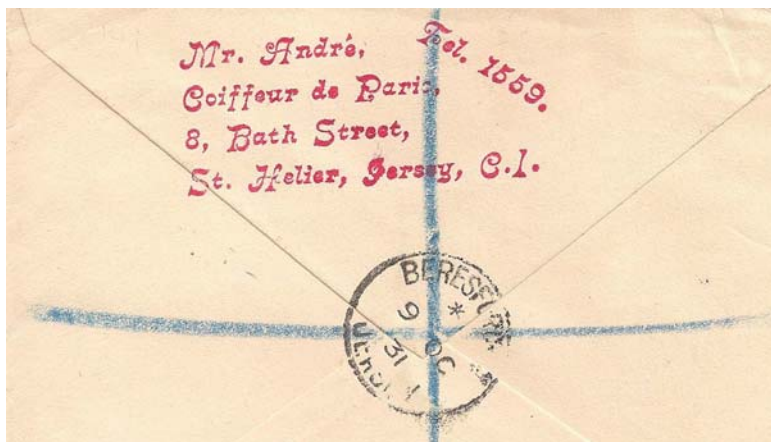 Mr. André,
Tel. 1559.
Coiffeur de Paris,
8, Bath Street,
St. Helier, Jersey, C.I.
* 
9 OC
31